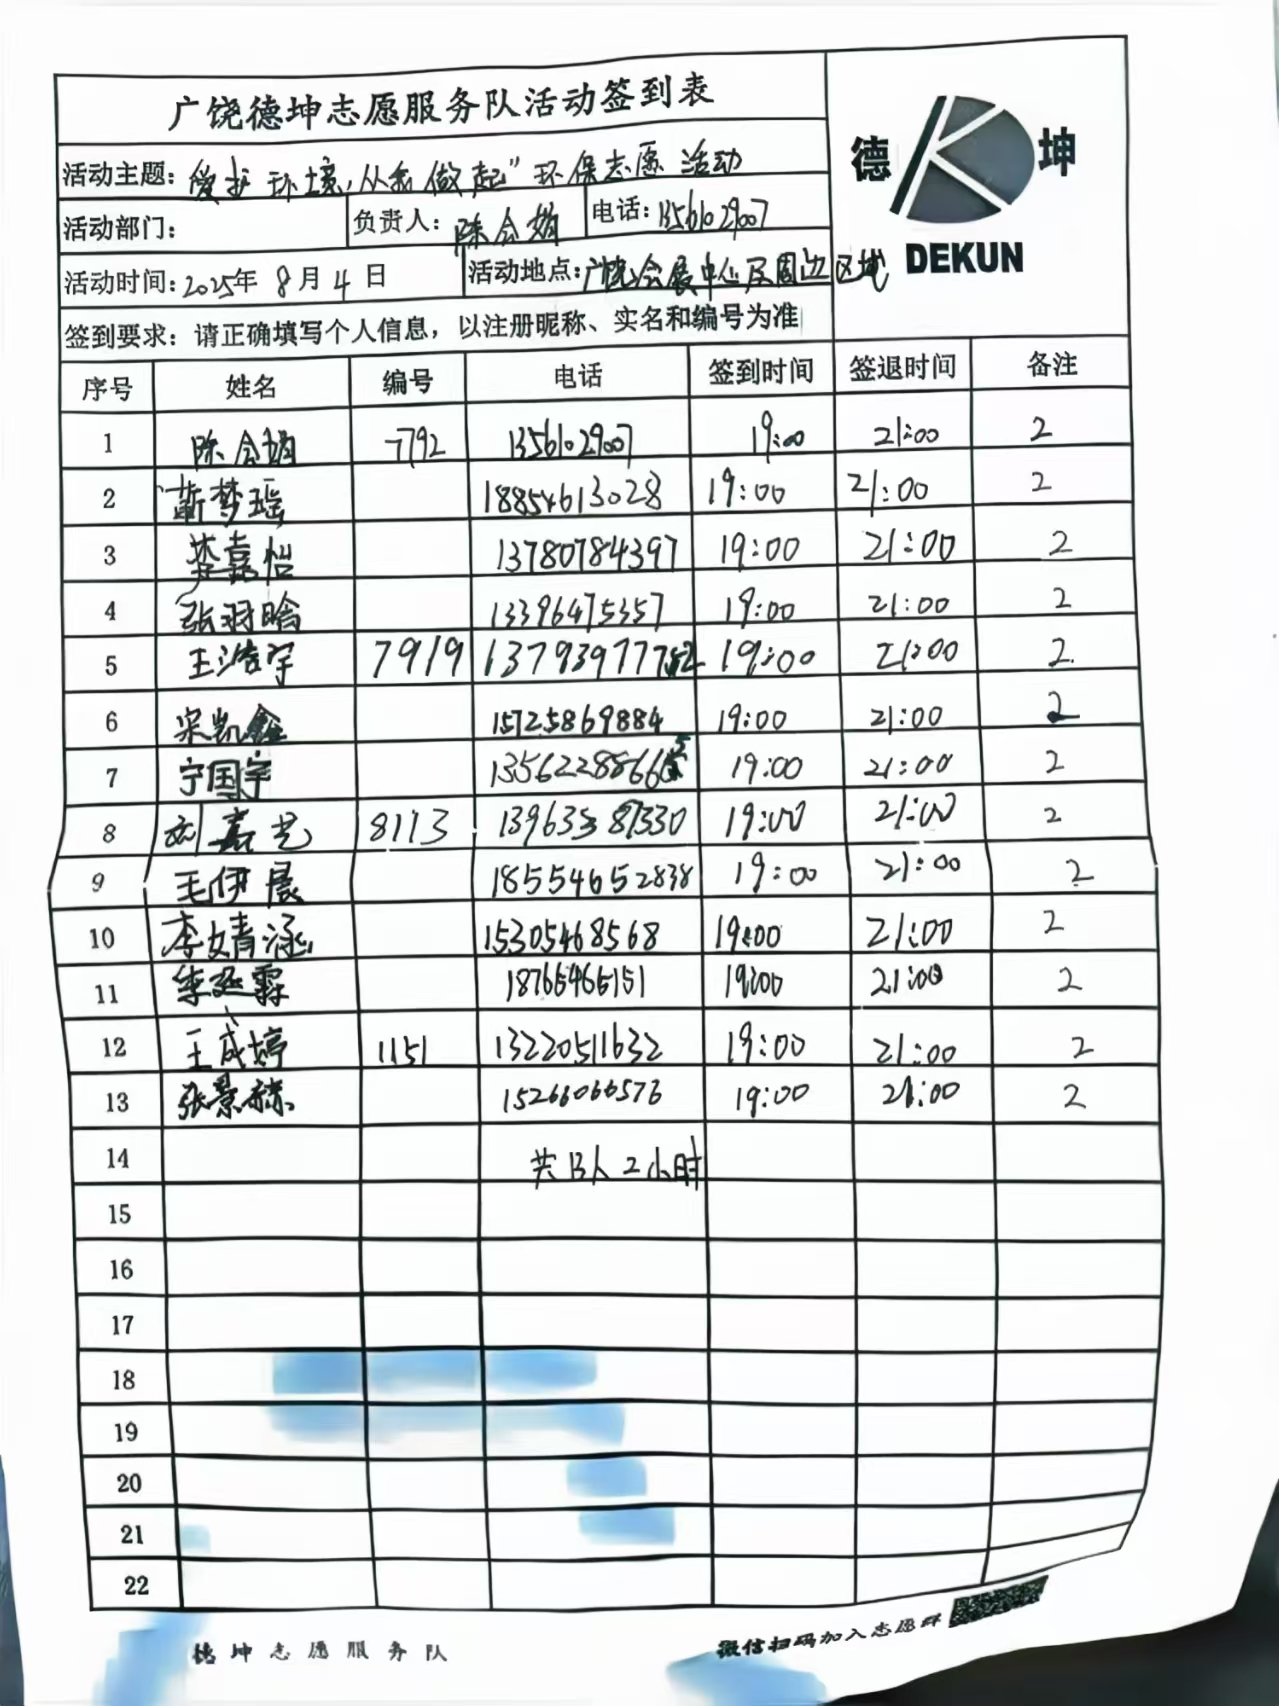 广饶德坤志愿服务队活动签到表
德 坤
DEKUN
活动主题：爱护环境,从我做起"环保志愿活动
活动部门： 负责人：陈会娟 电话：13561029007
活动时间：2025年8月4日 活动地点：广饶会展中心及周边区域
签到要求：请正确填写个人信息，以注册昵称、实名和编号为准
序号 姓名 编号 电话 签到时间 签退时间 备注
1 陈会娟 7792 13561029007 19:00 21:00 2
2 靳梦瑶 18854613028 19:00 21:00 2
3 嘉怡 13780784397 19:00 21:00 2
4 张羽晗 13396475357 19:00 21:00 2
5 王浩宇 7919 19:00 21:00 2
6 宋凯鑫 15725869884 19:00 21:00 2
7 宁国宇 19:00 21:00 2
8 刘嘉艺 8113 19:00 21:00 2
9 毛伊晨 18554652838 19:00 21:00 2
10 李婧涵 15305468568 19:00 21:00 2
11 李延霖 18765466151 19:00 21:00 2
12 王成婷 1151 13220511632 19:00 21:00 2
13 张景 15266066576 19:00 21:00 2
14 共13人2小时
15
16
17
18
19
20
21
22
德坤志愿服务队 微信扫码加入志愿群